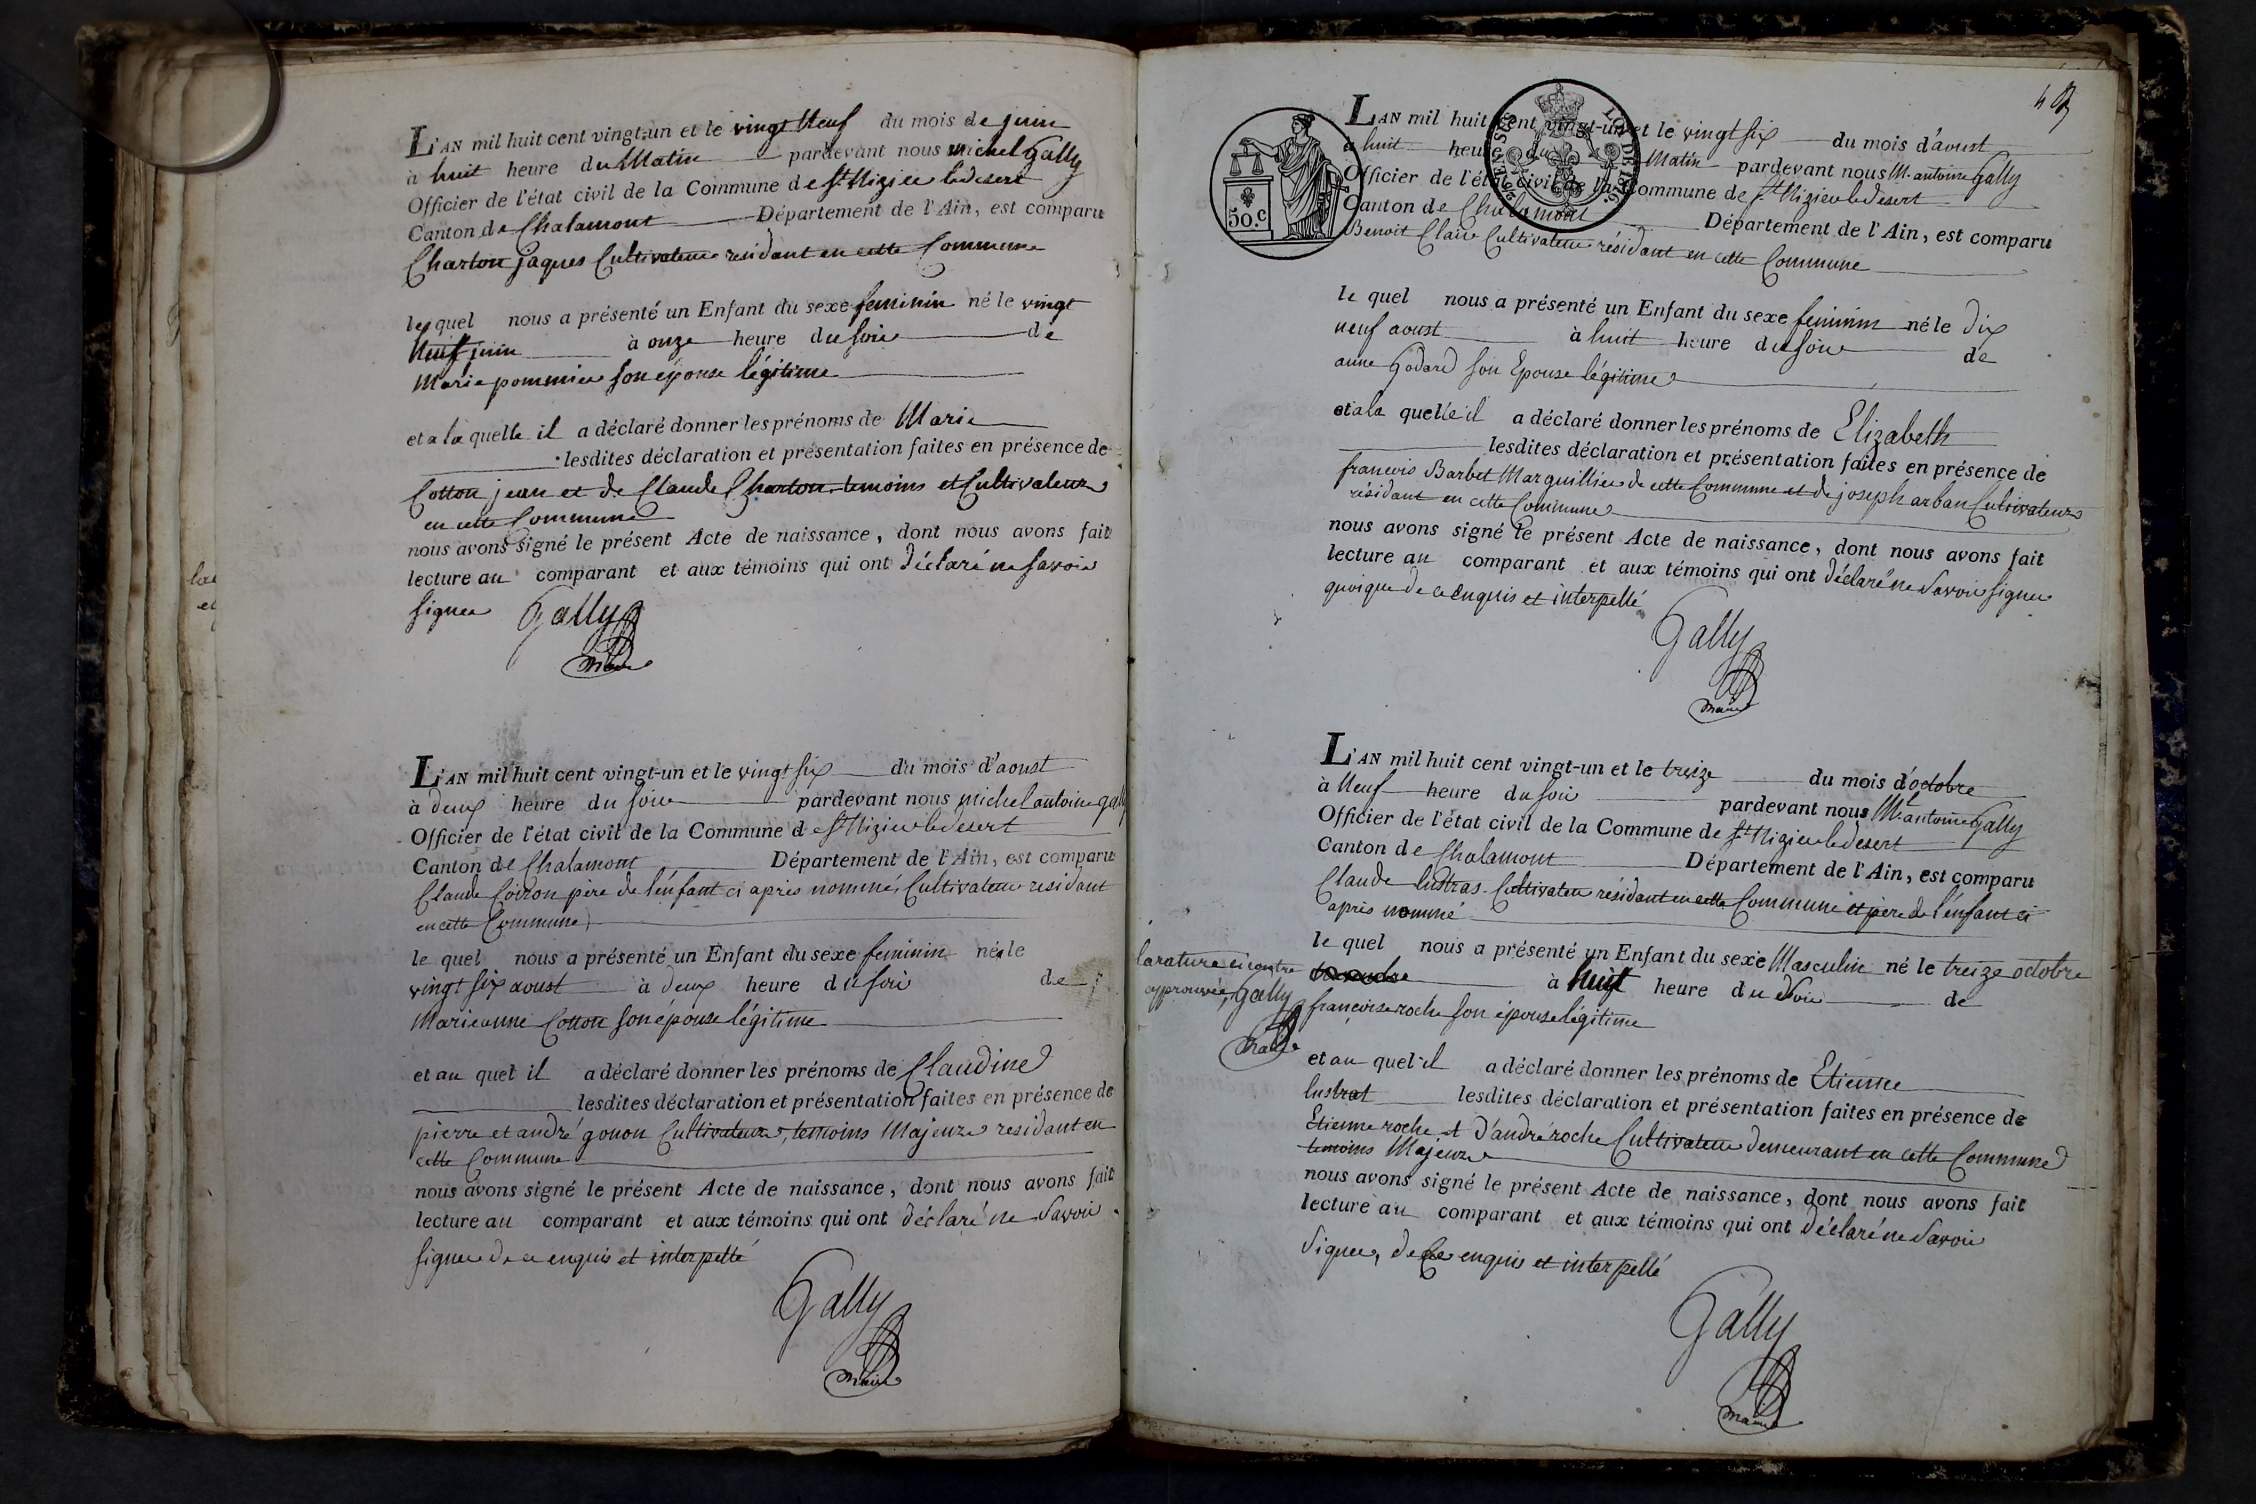 L'AN mil huit cent vingt-un et le vingt Neuf du mois de juin
à huit heure du Matin pardevant nous michel Gally
Officier de l'état civil de la Commune de St Nizier le desert
Canton de Chalamont Département de l'Ain, est comparu
Charton jaques Cultivateur residant en cette Commune
le quel nous a présenté un Enfant du sexe feminin né le vingt
Neuf juin à onze heure du soir de
Marie pommier son épouse légitime
et a la quelle il a déclaré donner les prénoms de Marie
lesdites déclaration et présentation faites en présence de
Cotton jean et de Claude Charton temoins et Cultivateurs
en cette Commune
nous avons signé le présent Acte de naissance, dont nous avons fait
lecture au comparant et aux témoins qui ont déclaré ne savoir
signer Gally
Maire
L'AN mil huit cent vingt-un et le vingt six du mois d'aoust
à deux heure du soir pardevant nous michel antoine gally
Officier de l'état civil de la Commune de St Nizier le desert
Canton de Chalamont Département de l'Ain, est comparu
Claude Coizon père de l'énfant ci après nommé, Cultivateur residant
en cette Commune
le quel nous a présenté un Enfant du sexe feminin né le
vingt six aoust à deux heure du soir de
Marieanne Cotton son épouse légitime
et au quel il a déclaré donner les prénoms de Claudine
lesdites déclaration et présentation faites en présence de
pierre et andré gonon Cultivateurs, temoins Majeurs residant en
cette Commune
nous avons signé le présent Acte de naissance, dont nous avons fait
lecture au comparant et aux témoins qui ont déclaré ne Savoir
signer de ce enquis et interpellé
Gally
Maire
50.C
LOI DE 1816.
L'AN mil huit cent vingt-un et le vingt six du mois d'aoust
à huit heure du Matin pardevant nous M. antoine Gally
Officier de l'état civil de la Commune de St Nizier le desert
Canton de Chalamont Département de l'Ain, est comparu
Benoit Claire Cultivateur résidant en cette Commune
le quel nous a présenté un Enfant du sexe feminin né le dix
neuf aoust à huit heure du soir de
anne Godard son Epouse légitime
et a la quelle il a déclaré donner les prénoms de Elizabeth
lesdites déclaration et présentation faites en présence de
francois Barbet Marguillier de cette Commune et de joseph arban Cultivateurs
résidant en cette Commune
nous avons signé le présent Acte de naissance, dont nous avons fait
lecture au comparant et aux témoins qui ont déclaré ne Savoir signer
quoique de ce enquis et interpellé
Gally
Maire
L'AN mil huit cent vingt-un et le treize du mois d'octobre
à Neuf heure du soir pardevant nous Ml antoine Gally
Officier de l'état civil de la Commune de St Nizier le desert
Canton de Chalamont Département de l'Ain, est comparu
Claude lustras Cultivateur résidant en cette Commune et père de l'énfant ci
après nommé
le quel nous a présenté un Enfant du sexe Masculin né le treize octobre
à huit heure du Soir de
francoise roche son épouse légitime
la rature ci contre
approuvée, Gally
Maire
et au quel il a déclaré donner les prénoms de Etienne
lustrat lesdites déclaration et présentation faites en présence de
Etienne roche et d'andré roche Cultivateur demeurant en cette Commune
temoins Majeurs
nous avons signé le présent Acte de naissance, dont nous avons fait
lecture au comparant et aux témoins qui ont déclaré ne Savoir
Signer, de Ce enquis et interpellé
Gally
Maire